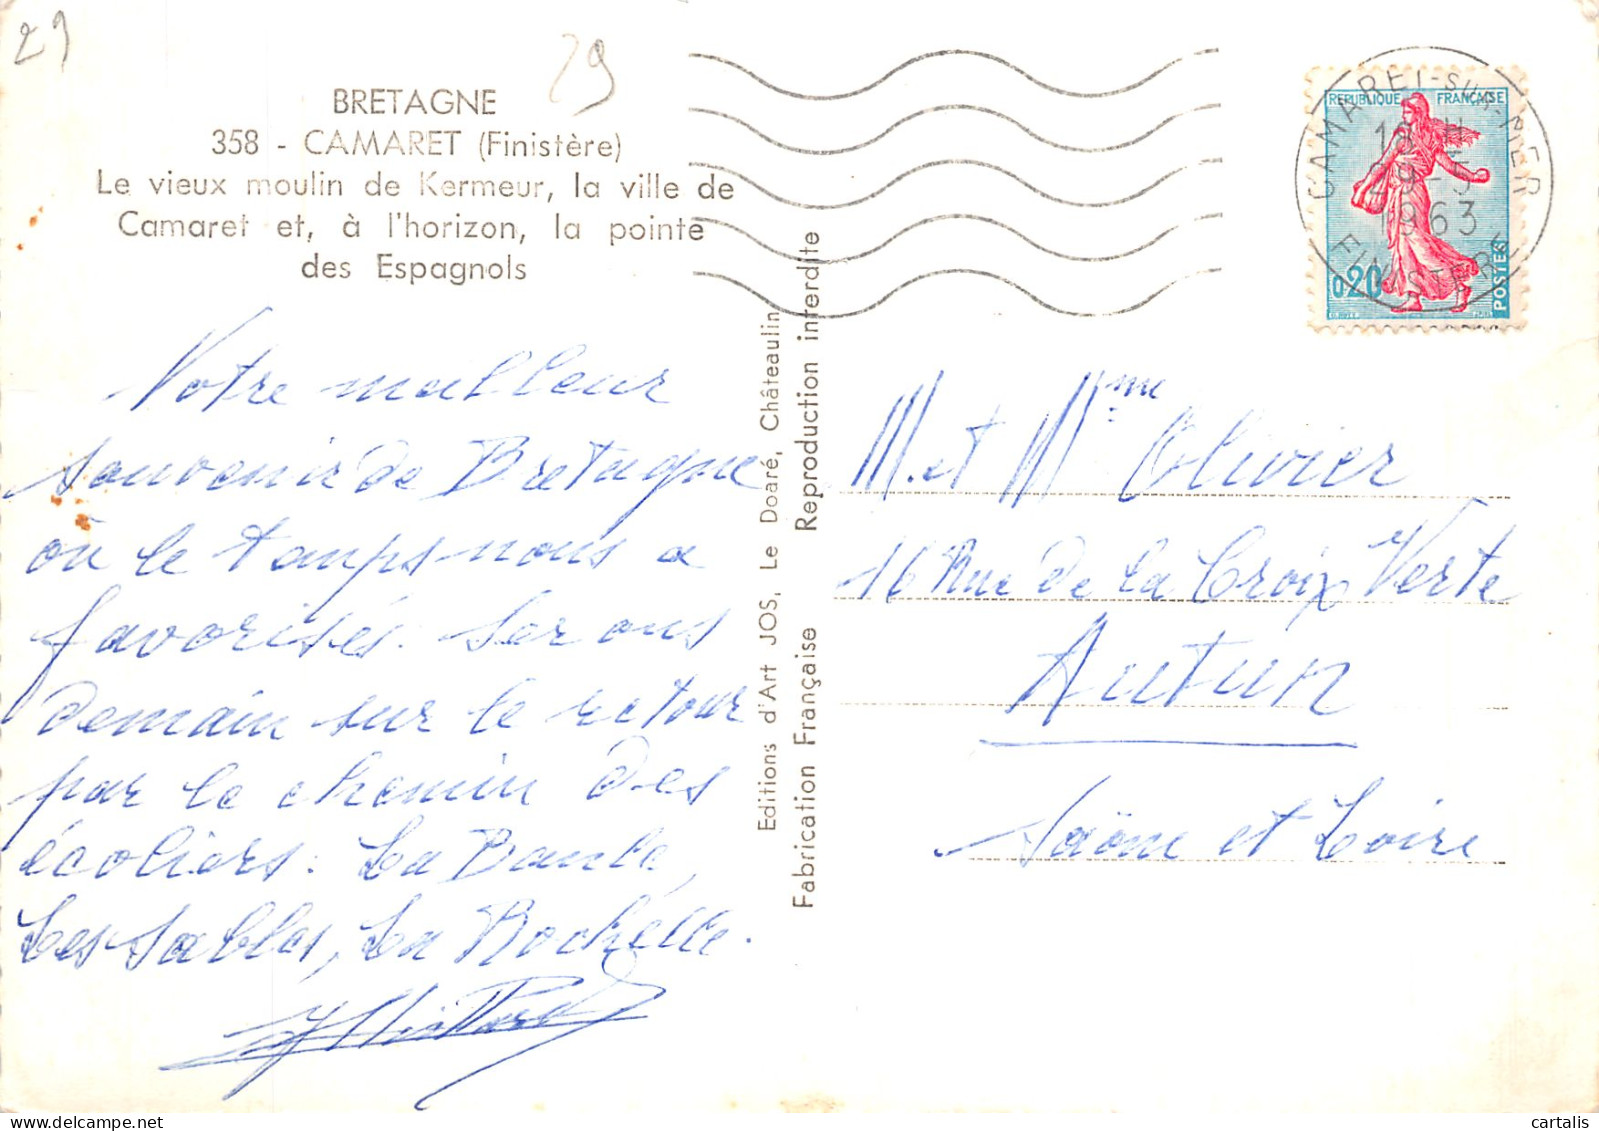 29
29
BRETAGNE
358 - CAMARET (Finistère)
Le vieux moulin de Kermeur, la ville de
Camaret et, à l'horizon, la pointe
des Espagnols
Votre meilleur
souvenir de Bretagne
où le temps nous a
favorisés. Serons
demain sur le retour
par le chemin des
écoliers: La Baule,
Les Sables, La Rochelle.
Editions d'Art JOS, Le Doaré, Châteaulin
Fabrication Française Reproduction interdite
REPUBLIQUE FRANÇAISE
0,20
POSTES
CAMARET-SUR-MER
29-5
1963
FINISTERE
M. et Mme Olivier
16 Rue de la Croix Verte
Autun
Saône et Loire
cartalis